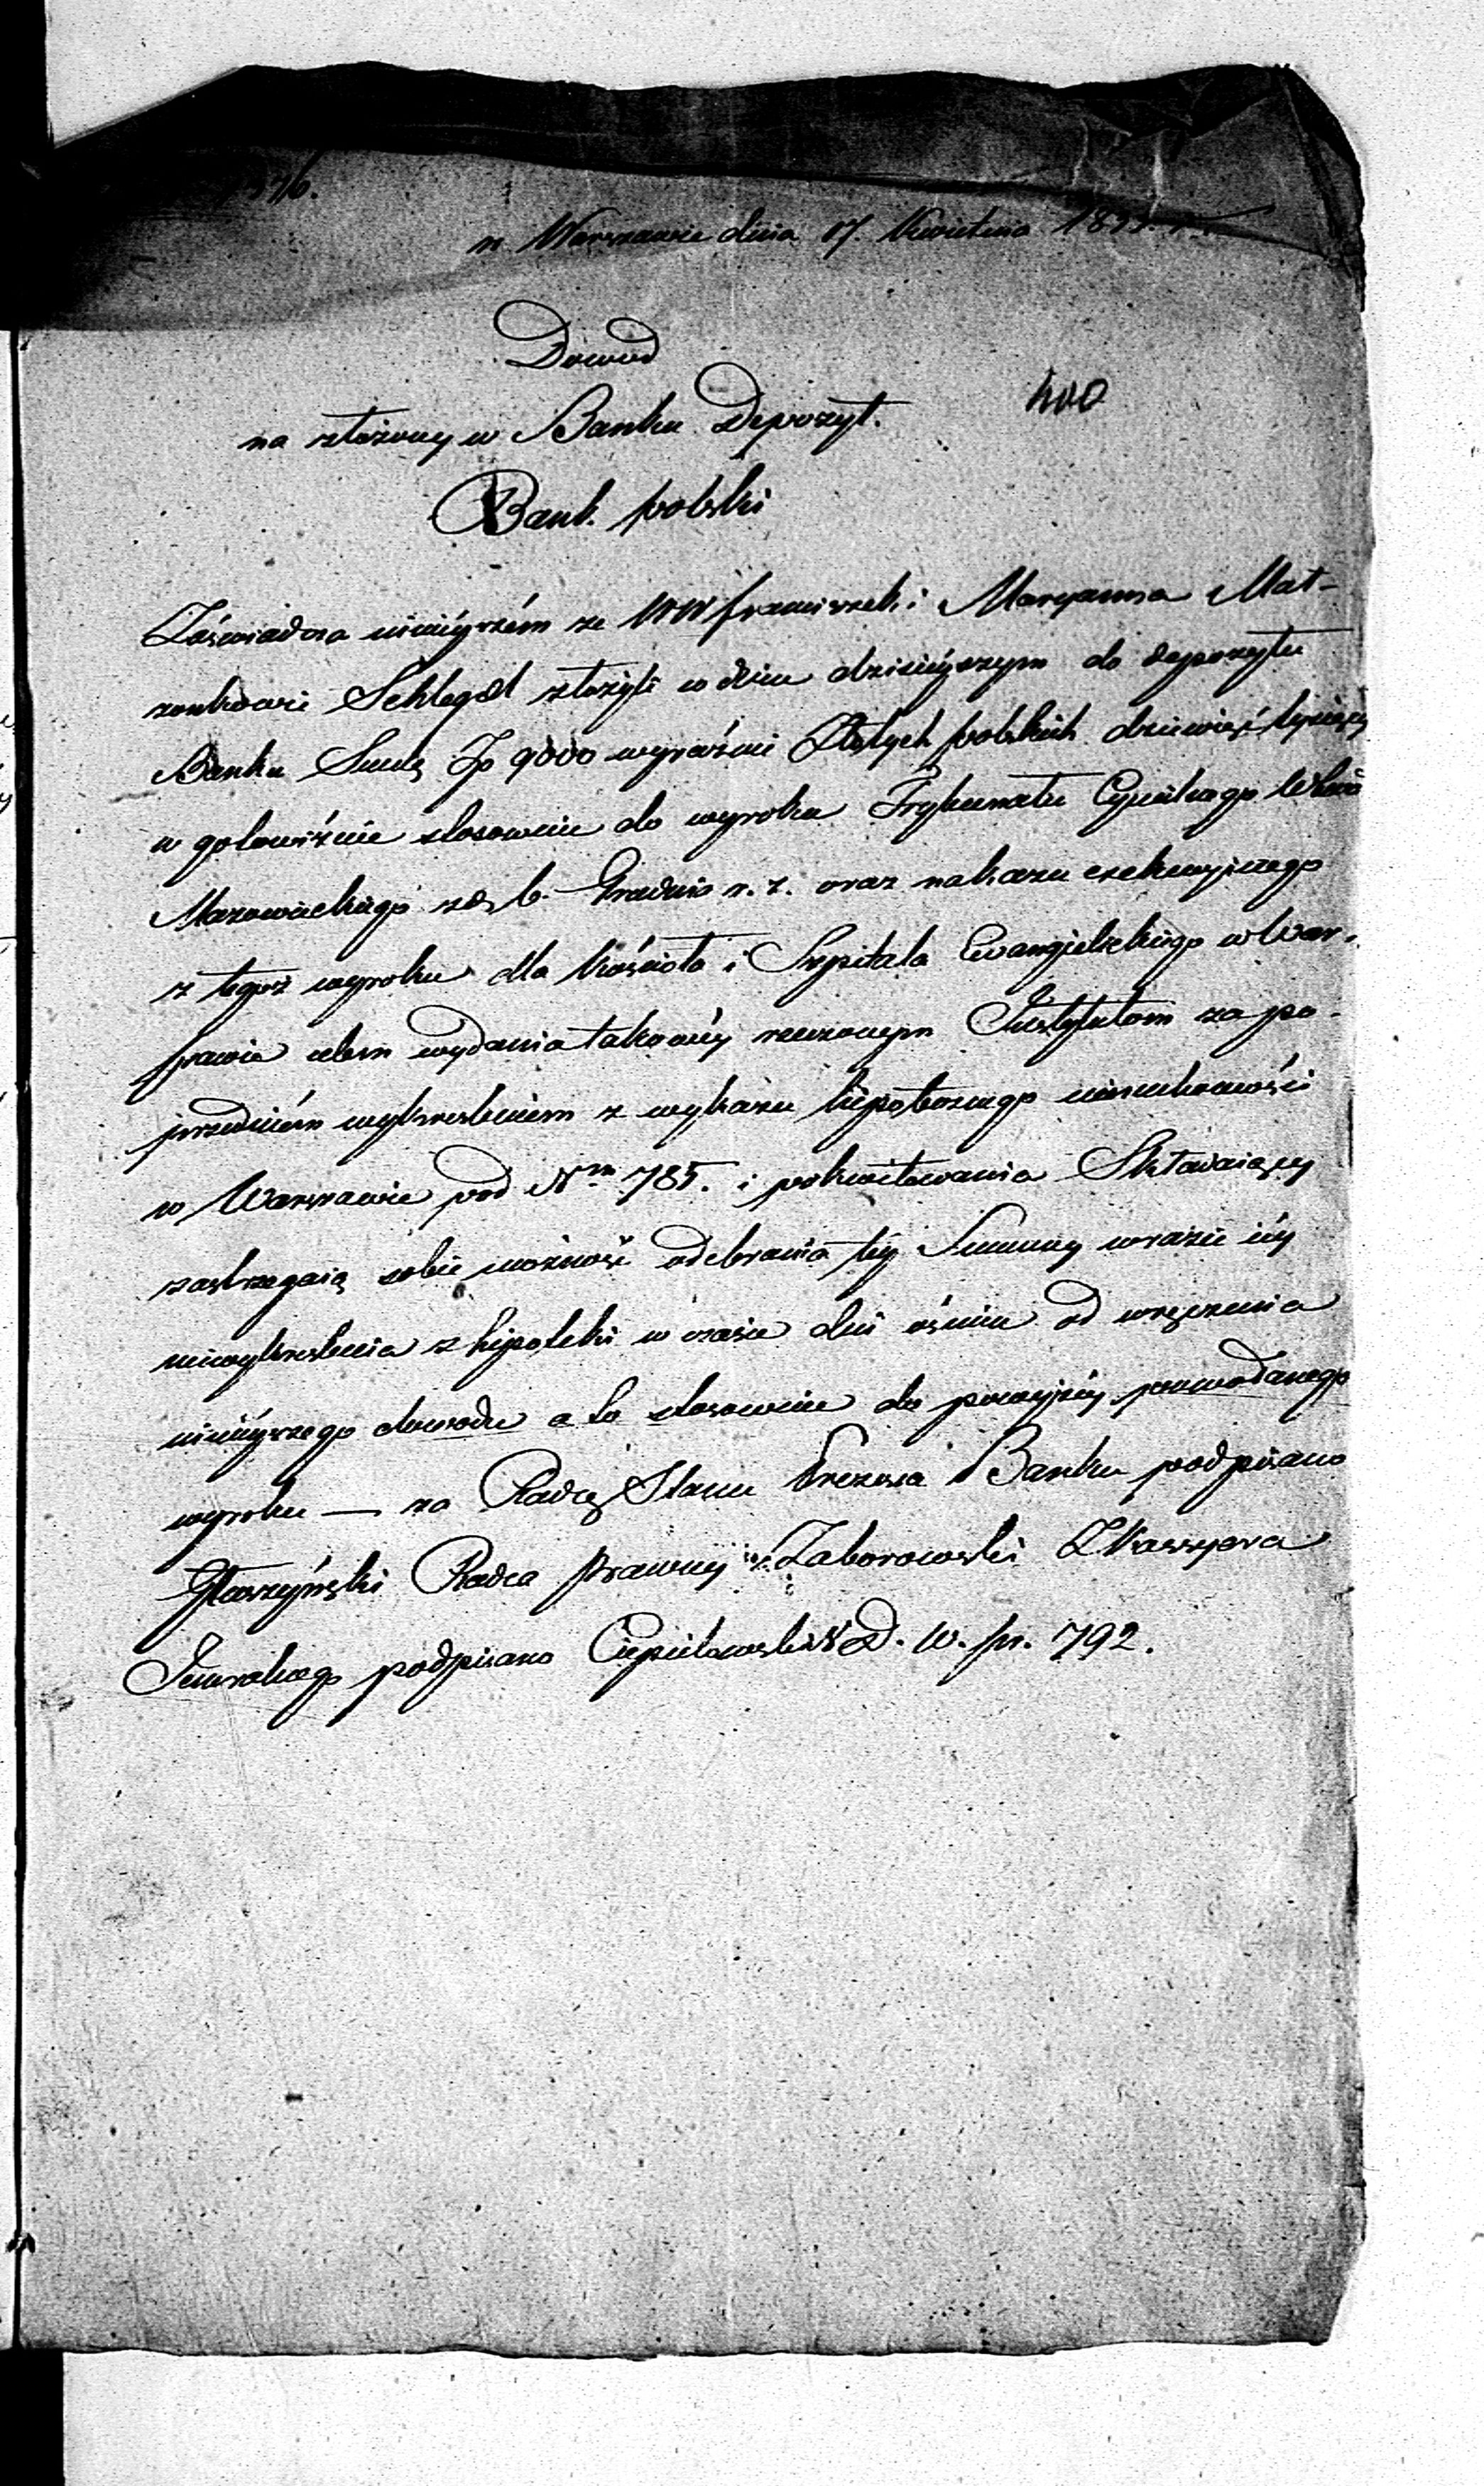 376.
w Warszawie dnia 17. Kwietnia 1833. r.
Dowód
400
na złożony w Banku Depozyt.
Bank polski
Zaświadcza ninieyszém że WW franciszek i Maryanna Mał-
żonkowie Schlegel złożyli w dniu dzisieyszym do depozytu
Banku Summę Zp 9000 wyraźnie Złotych polskich dziewięć tysięcy
w gotowiźnie stosownie do wyroku Trybunału Cywilnego
Mazowieckiego z d. 6. Grudnia r. z. oraz nakazu exekucyjnego
z tegoż wyroku dla kościoła i Szpitala Ewangielickiego w War-
szawie celem wydania takowéy rzeczonym Instytutom za po-
przedniém wykreśleniem z wykazu hipotecznego nieruchomości
w Warszawie pod Nrm 785. i pokwitowania Składaiący
zastrzegaią sobie możność odebrania téy Summy w razie iéy
niewykreślenia z hipoteki w czasie dni ośmiu od wręczenia
ninieyszego dowodu a to stosownie do powyżéy powodanego
wyroku — za Radcę Stanu Prezesa Banku podpisano
Radca Prawny Zaborowski Z Kassyera
Jeneralnego podpisano D. W. pr. 792.